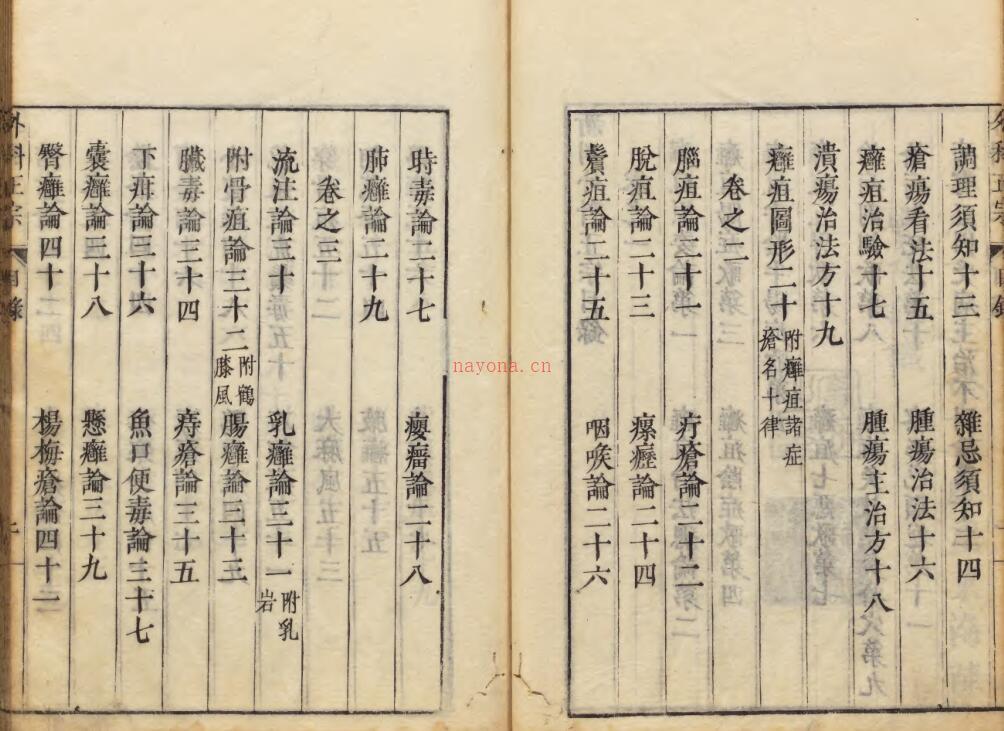 調理須知十三 雜忌須知十四
瘡瘍看法十五 腫瘍治法十六
癰疽治驗十七 腫瘍主治方十八
潰瘍治法方十九
癰疽圖形二十 附癰疽諸症瘡名十律
卷之二
腦疽論二十一 疔瘡論二十二
脫疽論二十三 瘰癧論二十四
鬢疽論二十五 咽喉論二十六
時毒論二十七 瘿瘤論二十八
肺癰論二十九
卷之三
流注論三十 乳癰論三十一 附乳岩
附骨疽論三十二 附鶴膝風 腸癰論三十三
臟毒論三十四 痔瘡論三十五
下疳論三十六 魚口便毒論三十七
囊癰論三十八 懸癰論三十九
臀癰論四十 楊梅瘡論四十一
外科正宗 目錄
nayona.cn